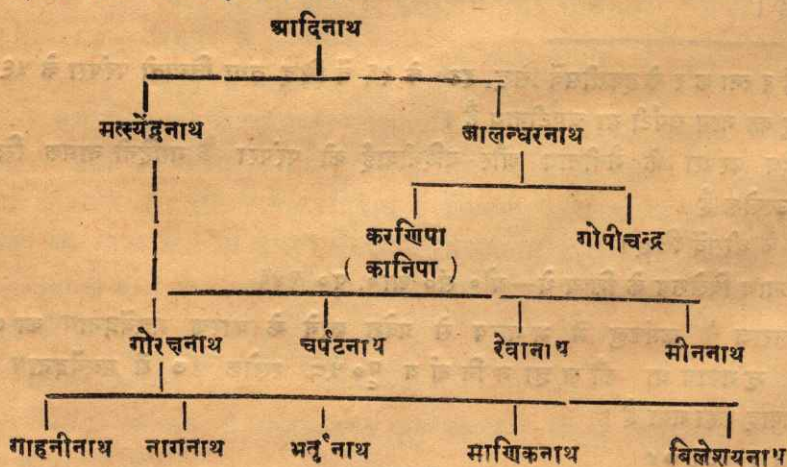 आदिनाथ
मत्स्येंद्रनाथ जालन्धरनाथ
करणिपा गोपीचन्द्र
( कानिपा )
गोरक्षनाथ चर्पटनाथ रेवानाथ मीननाथ
गाहनीनाथ नागनाथ भर्तृनाथ माणिकनाथ बिलेशयनाथ